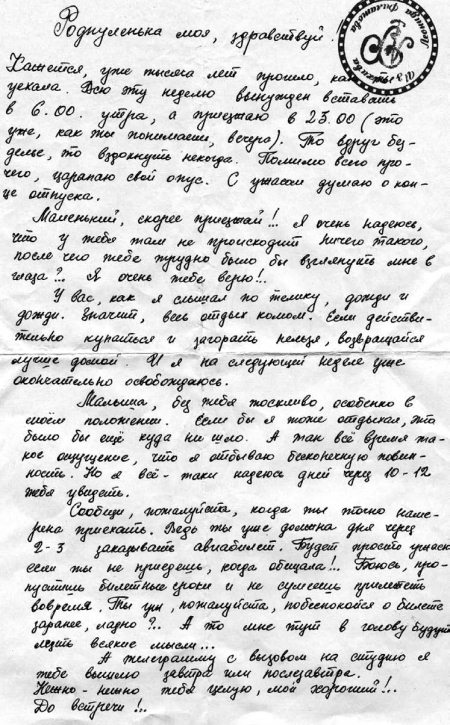 Роднуленька моя, здравствуй.
Кажется, уже тысяча лет прошло, как ты
уехала. Всю эту неделю вынужден вставать
в 6.00. утра, а приезжаю в 23.00 (это
уже, как ты понимаешь, вечера). То вдруг без-
делье, то вздохнуть некогда. Помимо всего про-
чего, царапаю свой опус. С ужасом думаю о кон-
це отпуска.
Маленький, скорее приезжай!.. Я очень надеюсь,
что у тебя там не происходит ничего такого,
после чего тебе трудно было бы взглянуть мне в
глаза?.. Я очень тебе верю!..
У вас, как я слышал по телику, дожди и
дожди. Значит, весь отдых комом. Если действи-
тельно купаться и загорать нельзя, возвращайся
лучше домой. И я на следующей неделе уже
окончательно освобождаюсь.
Малыша, без тебя тоскливо, особенно в
моём положении. Если бы я тоже отдыхал, это
было бы ещё куда ни шло. А так всё время та-
кое ощущение, что я отбываю бесконечную повин-
ность. Но я всё-таки надеюсь дней через 10-12
тебя увидеть.
Сообщи, пожалуйста, когда ты точно наме-
рена приехать. Ведь ты уже должна дня через
2-3 заказывать авиабилет. Будет просто ужасно,
если ты не приедешь, когда обещала!.. Боюсь, про-
пустишь билетные сроки и не сумеешь прилететь
вовремя. Ты уж, пожалуйста, побеспокойся о билете
заранее, ладно?.. А то мне тут в голову будут
лезть всякие мысли...
А телеграмму с вызовом на студию я
тебе вышлю завтра или послезавтра.
Нежно-нежно тебя целую, мой хороший!..
До встречи!..